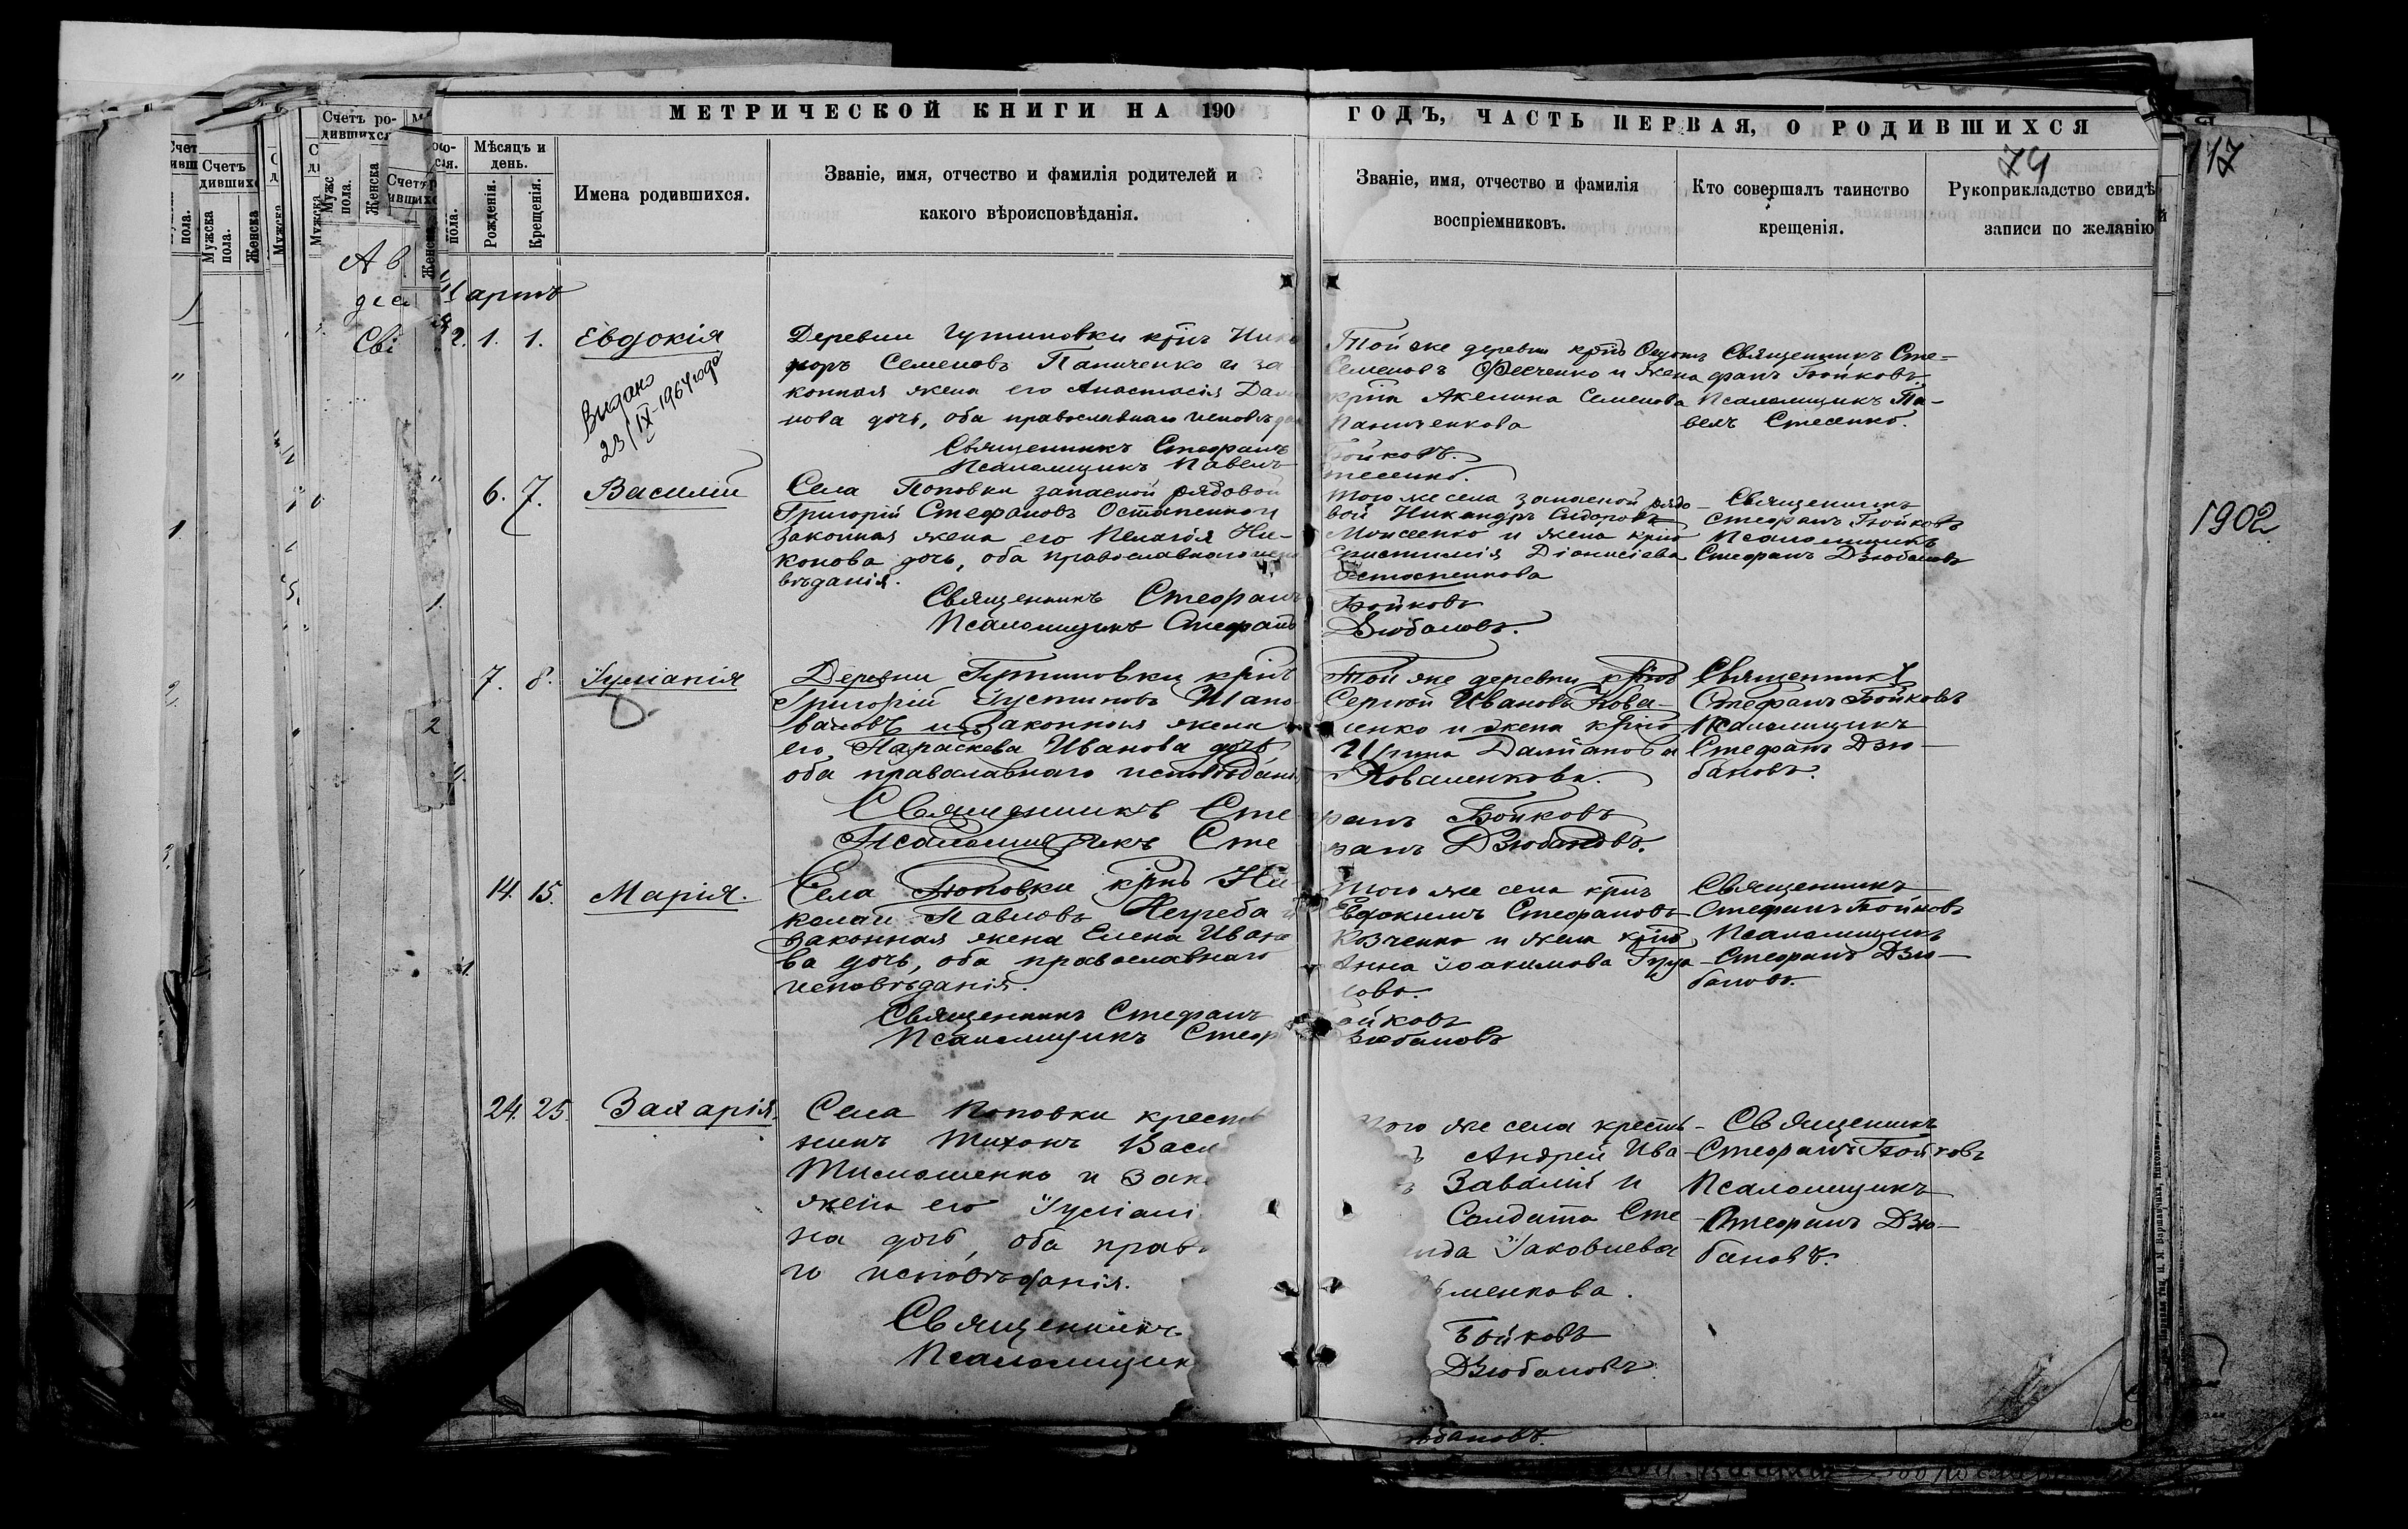 МЕТРИЧЕСКОЙ КНИГИ НА 190
ГОДЪ, ЧАСТЬ ПЕРВАЯ, О РОДИВШИХСЯ
74
117
1902
Счетъ ро-
дившихся
Мѣсяцъ и
день.
Рожденія.
Крещенія.
Имена родившихся.
Званіе, имя, отчество и фамилія родителей и
какого вѣроисповѣданія.
Званіе, имя, отчество и фамилія
воспріемниковъ.
Кто совершалъ таинство
крещенія.
Рукоприкладство свидѣ
записи по желанію
Мартъ
2. 1. 1.
Евдокія
Видано
23/IX-1964 года
Деревни крнъ Ники
форъ Семеновъ Паниченко и за
конная жена его Анастасія Дам
нова дочь, оба православнаго исповѣда
Священникъ Стефанъ
Псаломщикъ Павелъ
Той же деревни крнъ
Семеновъ Фесченко и жена
крна Акелина Семенова
Паниченкова
Бойковъ.
Стесенко.
Священникъ Сте-
фанъ Бойковъ.
Псаломщикъ Па-
велъ Стесенко.
6. 7.
Василій
Села Поповки запасной рядовой
Григорій Стефановъ Остапенко и
законная жена его Пелагія Ни-
конова дочь, оба православнаго испо
вѣданія.
Священникъ Стефанъ
Псаломщикъ Стефанъ
Того же села запасной рядо-
вой Никандръ Сидоровъ
Моисеенко и жена крна
Христинія Діонисіева
Остапенкова
Бойковъ
Дзюбановъ.
Священникъ
Стефанъ Бойковъ
Псаломщикъ
Стефанъ Дзюбановъ
7. 8.
Іуліанія
Деревни крнъ
Григорій Іустиновъ Шапо
валовъ и законная жена
его Параскева Иванова дочь
оба православнаго исповѣдані
Священникъ Сте
Псаломщикъ Сте
Той же деревни крнъ
Сергѣй Ивановъ Кова-
ленко и жена крна
Ирина Даміанова
Коваленкова.
фанъ Бойковъ
фанъ Дзюбановъ.
Священникъ
Стефанъ Бойковъ
Псаломщикъ
Стефанъ Дзю-
бановъ.
14. 15.
Марія.
Села Поповки крнъ Ни
колай Павловъ Негреба и
законная жена Елена Ивано
ва дочь, оба православнаго
исповѣданія.
Священникъ Стефанъ
Псаломщикъ Стеф
Того же села крнъ
Евдокимъ Стефановъ
и жена крна
Анна Іоакимова
Бойковъ
Дзюбановъ
Священникъ
Стефанъ Бойковъ
Псаломщикъ
Стефанъ Дзю-
бановъ.
24. 25.
Захарія.
Села Поповки крестья
нинъ Тихонъ Васи
Тимошенко и зак
жена его Іуліані
на дочь, оба прав
го исповѣданія.
Священникъ
Псаломщик
того же села крестья-
Андрей Ива-
Завалій и
Солдата Сте-
нида Іаковлева
менкова.
Бойковъ
Дзюбановъ.
Священникъ
Стефанъ Бойковъ
Псаломщикъ
Стефанъ Дзю-
бановъ.